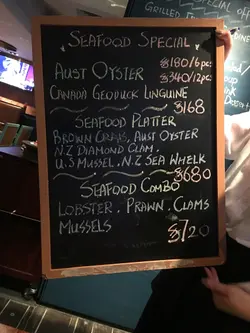 SEAFOOD SPECIAL
AUST OYSTER $180/6pc
$340/12pc
CANADA GEODUCK LINGUINE
$168
SEAFOOD PLATTER
BROWN CRABS, AUST OYSTER
N.Z DIAMOND CLAM,
U.S MUSSEL, N.Z SEA WHELK
$680
SEAFOOD COMBO
LOBSTER, PRAWN, CLAMS
MUSSELS $720
SPECIAL
GRILLED